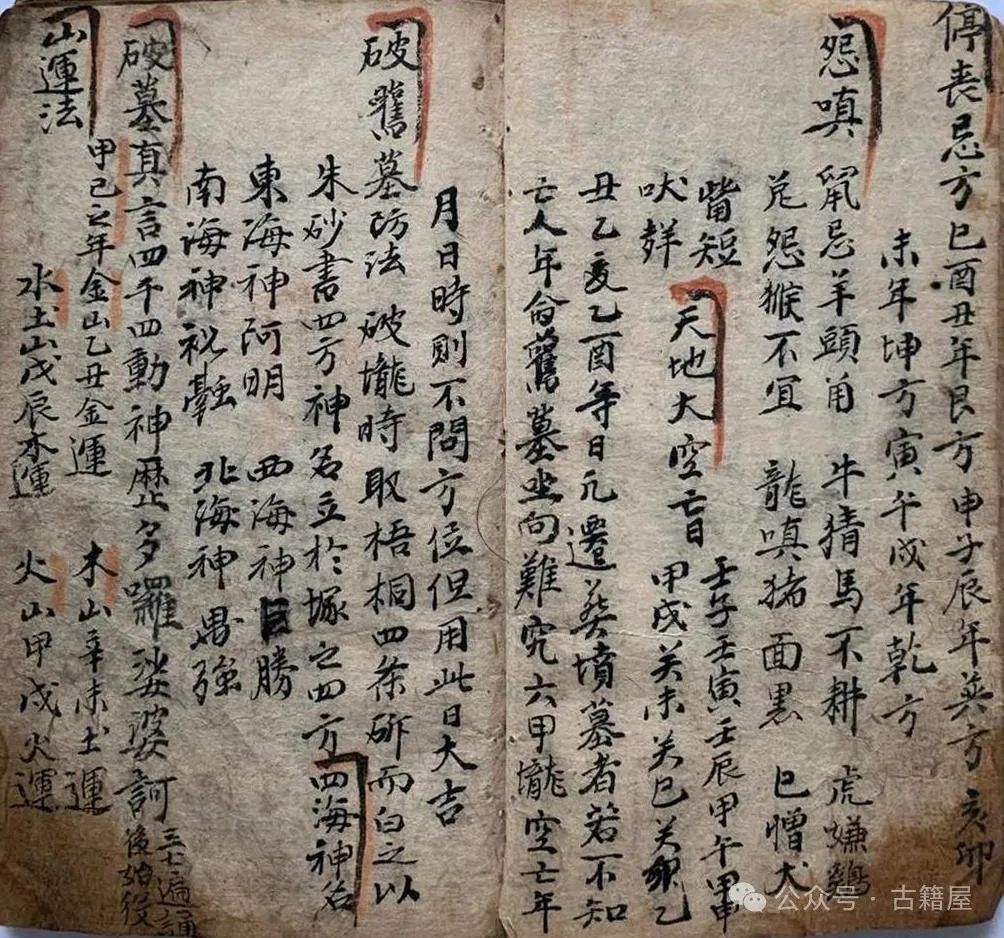 停丧忌方巳酉丑年艮方申子辰年巽方亥卯
未年坤方寅午戌年乾方
怨嗔鼠忌羊頭角 牛猜馬不耕 虎嫌鷄
兎怨猴不宜 龍嗔猪面黑 巳憎犬
吠
天地大空亡日 壬子壬寅壬辰甲午甲申
甲戌癸未癸巳癸卯乙
丑乙亥乙酉等日凡遷葬墳墓者若不知
亡人年命舊墓坐向難究六甲壠空亡年
月日時則不問方位但用此日大吉
破舊墓防法 破壠時取梧桐四条斫而白之以
朱砂書四方神名立於塚之四方四海神名
東海神阿明 西海神巨勝
南海神祝融 北海神禺强
破墓真言四千四動神歷多囉娑婆訶
三七遍誦
後始役
山運法
甲己之年金山乙丑金運 木山辛未土運
水土山戊辰木運 火山甲戌火運
公众号·古籍屋